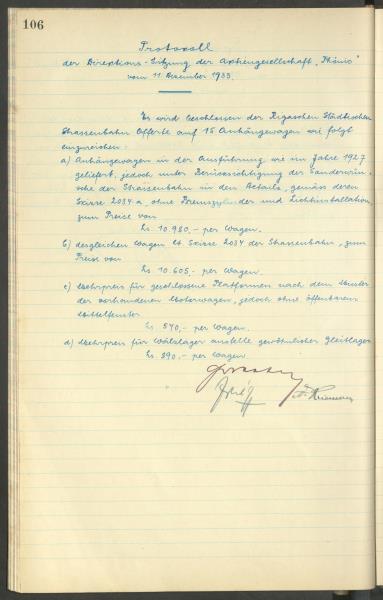 106
Protocoll
der Direktions-Sitzung der Aktiengesellschaft "Phönix"
vom 11. Dezember 1933.
Es wird beschlossen der Rigaschen Städtischen
Strassenbahn Offerte auf 15 Anhängewagen wie folgt
einzureichen:
a) Anhängewagen in der Ausführung wie im Jahre 1927
geliefert, jedoch unter Berücksichtigung der Sonderwün-
sche der Strassenbahn in den Details, gemäss deren
Skizze 2034 a ohne Bremszylinder und Lichtinstallation
zum Preise von
Ls. 10.980,- per Wagen.
b) desgleichen Wagen lt. Skizze 2034 der Strassenbahn, zum
Preise von
Ls 10.605,- per Wagen.
c) Mehrpreis für geschlossene Platformen nach dem Muster
der vorhandenen Motorwagen, jedoch ohne öffenbarem
Mittelfenster
Ls. 540,- per Wagen.
d) Mehrpreis für Wälzlager anstelle gewöhnlicher Gleitlager
Ls. 890,- per Wagen